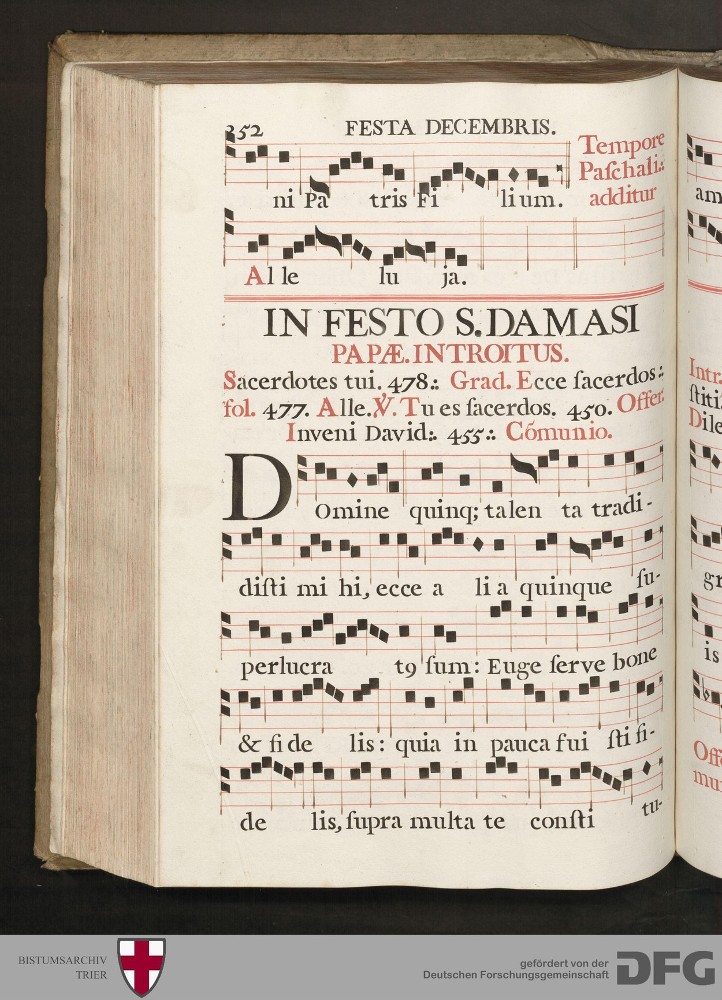 352 FESTA DECEMBRIS.
Tempore
Paſchali
additur
ni Pa tris Fi lium.
Al le lu ja.
IN FESTO S. DAMASI
PAPÆ. INTROITUS.
Sacerdotes tui. 478.: Grad. Ecce ſacerdos:.
fol. 477. Alle. ℣. Tu es ſacerdos. 450. Offer.
Inveni David:. 455.: Cõmunio.
Domine quinq; talen ta tradi-
diſti mi hi, ecce a li a quinque ſu-
perlucra t9 ſum: Euge ſerve bone
& fi de lis: quia in pauca fui ſti fi-
de lis, ſupra multa te conſti tu-
am
Intr.
ſtiti
Dile
gr
is
Offe
mu
BISTUMSARCHIV
TRIER
gefördert von der
Deutschen Forschungsgemeinschaft
DFG